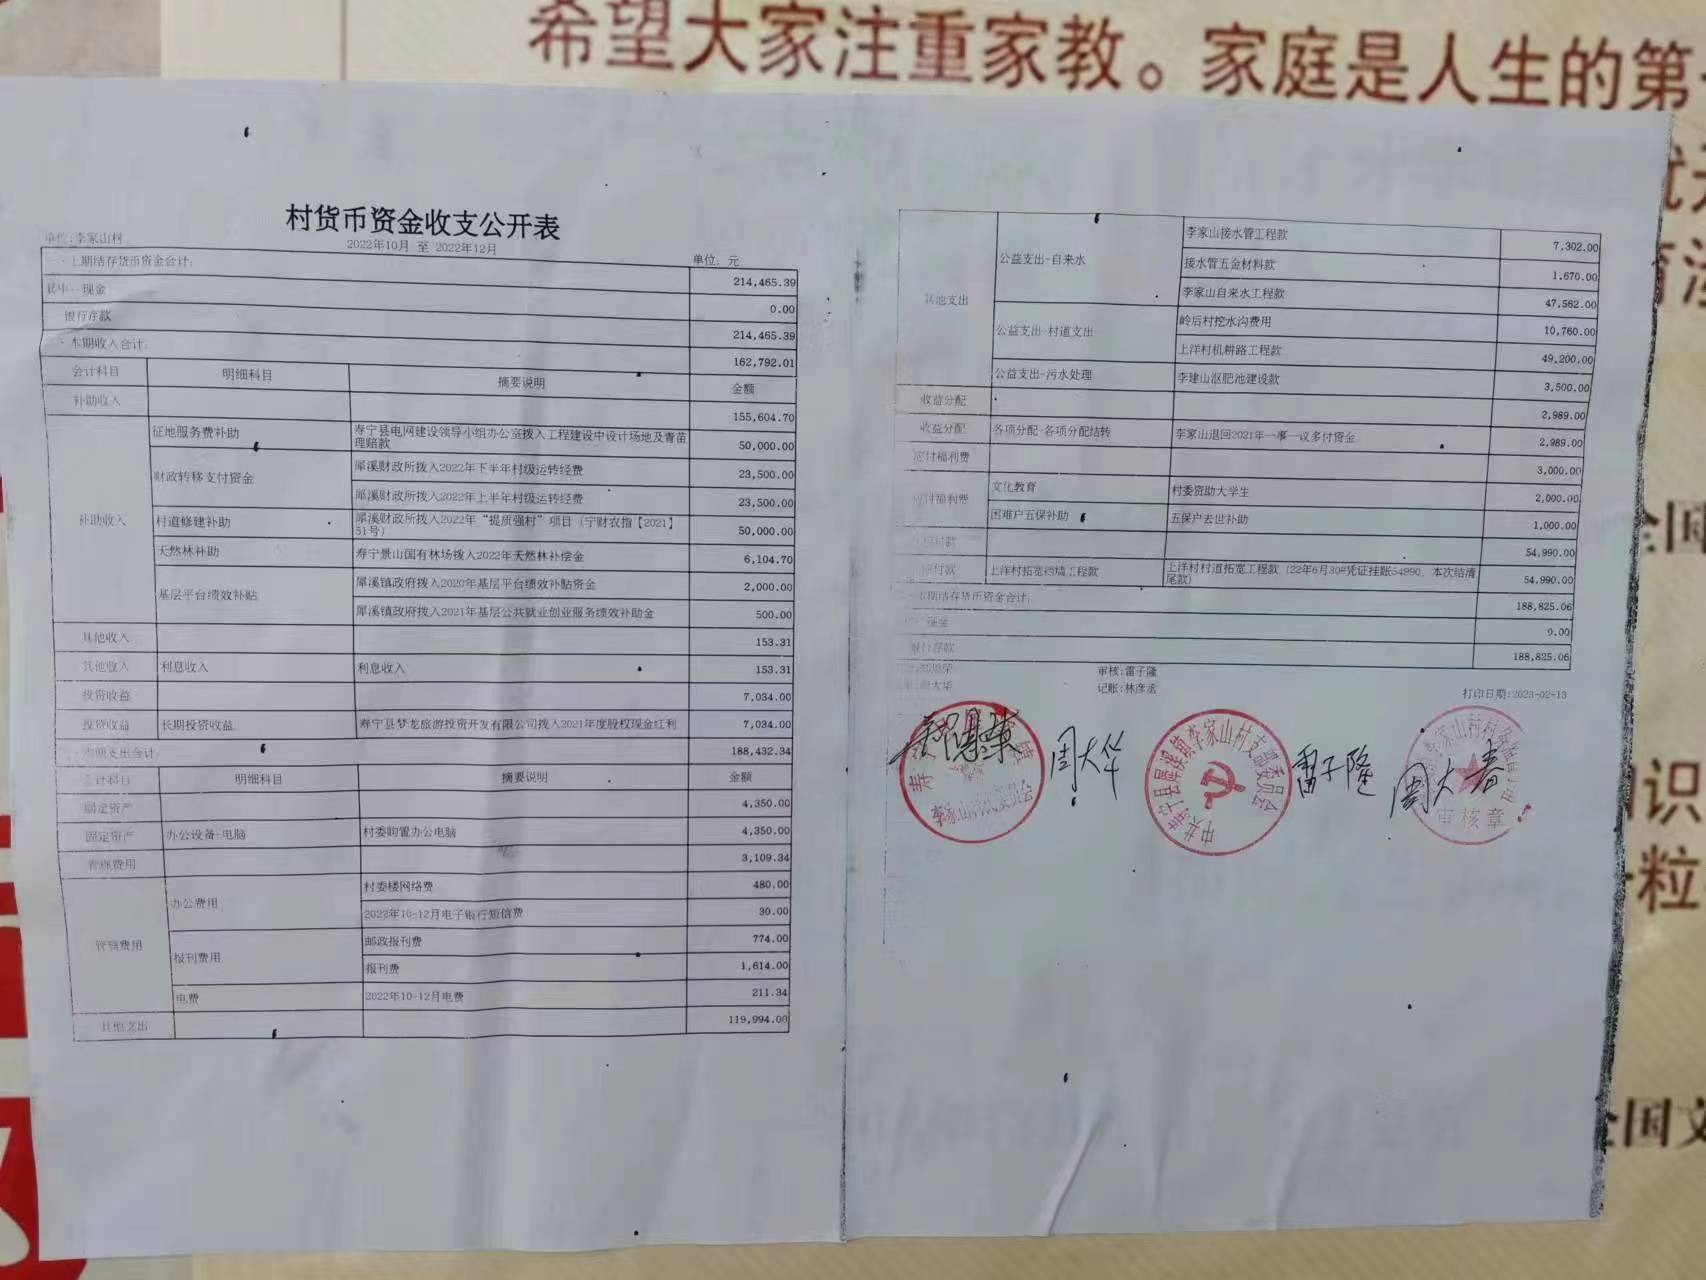 希望大家注重家教。家庭是人生的第
村货币资金收支公开表
单位:李家山村
2022年10月 至 2022年12月
单位: 元
一、上期结存货币资金合计: 214,465.39
其中:现金 0.00
银行存款 214,465.39
二、本期收入合计: 162,792.01
会计科目 明细科目 摘要说明 金额
补助收入 155,604.70
补助收入
征地服务费补助 寿宁县电网建设领导小组办公室拨入工程建设中设计场地及青苗理赔款 50,000.00
财政转移支付资金 犀溪财政所拨入2022年下半年村级运转经费 23,500.00
犀溪财政所拨入2022年上半年村级运转经费 23,500.00
村道修建补助 犀溪财政所拨入2022年“提质强村”项目(宁财农指【2021】51号) 50,000.00
天然林补助 寿宁景山国有林场拨入2022年天然林补偿金 6,104.70
基层平台绩效补贴 犀溪镇政府拨入2020年基层平台绩效补贴资金 2,000.00
犀溪镇政府拨入2021年基层公共就业创业服务绩效补助金 500.00
其他收入 153.31
其他收入 利息收入 利息收入 153.31
投资收益 7,034.00
投资收益 长期投资收益 寿宁县梦龙旅游投资开发有限公司拨入2021年度股权现金红利 7,034.00
本期支出合计: 188,432.34
会计科目 明细科目 摘要说明 金额
固定资产 4,350.00
固定资产 办公设备-电脑 村委购置办公电脑 4,350.00
管理费用 3,109.34
管理费用
办公费用 村委楼网络费 480.00
2022年10-12月电子银行短信费 30.00
报刊费用 邮政报刊费 774.00
报刊费 1,614.00
电费 2022年10-12月电费 211.34
其他支出 119,994.00
其他支出
公益支出-自来水 李家山接水管工程款 7,302.00
接水管五金材料款 1,670.00
李家山自来水工程款 47,562.00
公益支出-村道支出 岭后村挖水沟费用 10,760.00
上洋村机耕路工程款 49,200.00
公益支出-污水处理 李建山沤肥池建设款 3,500.00
收益分配 2,989.00
收益分配 各项分配-各项分配结转 李家山退回2021年一事一议多付资金 2,989.00
应付福利费 3,000.00
应付福利费 文化教育 村委资助大学生 2,000.00
困难户五保补助 五保户去世补助 1,000.00
应付款 54,990.00
应付款 上洋村拓宽挡墙工程款 上洋村村道拓宽工程款(22年6月30#凭证挂账54990,本次结清尾款) 54,990.00
期结存货币资金合计: 188,825.06
现金 0.00
银行存款 188,825.06
审核:雷子隆
周大华 记账:林彦丞
打印日期:2023-02-13
李家山村民委员会
周大华
中共寿宁县犀溪镇李家山村支部委员会
雷子隆
周大春
审核章
全国
识
粒
全国文